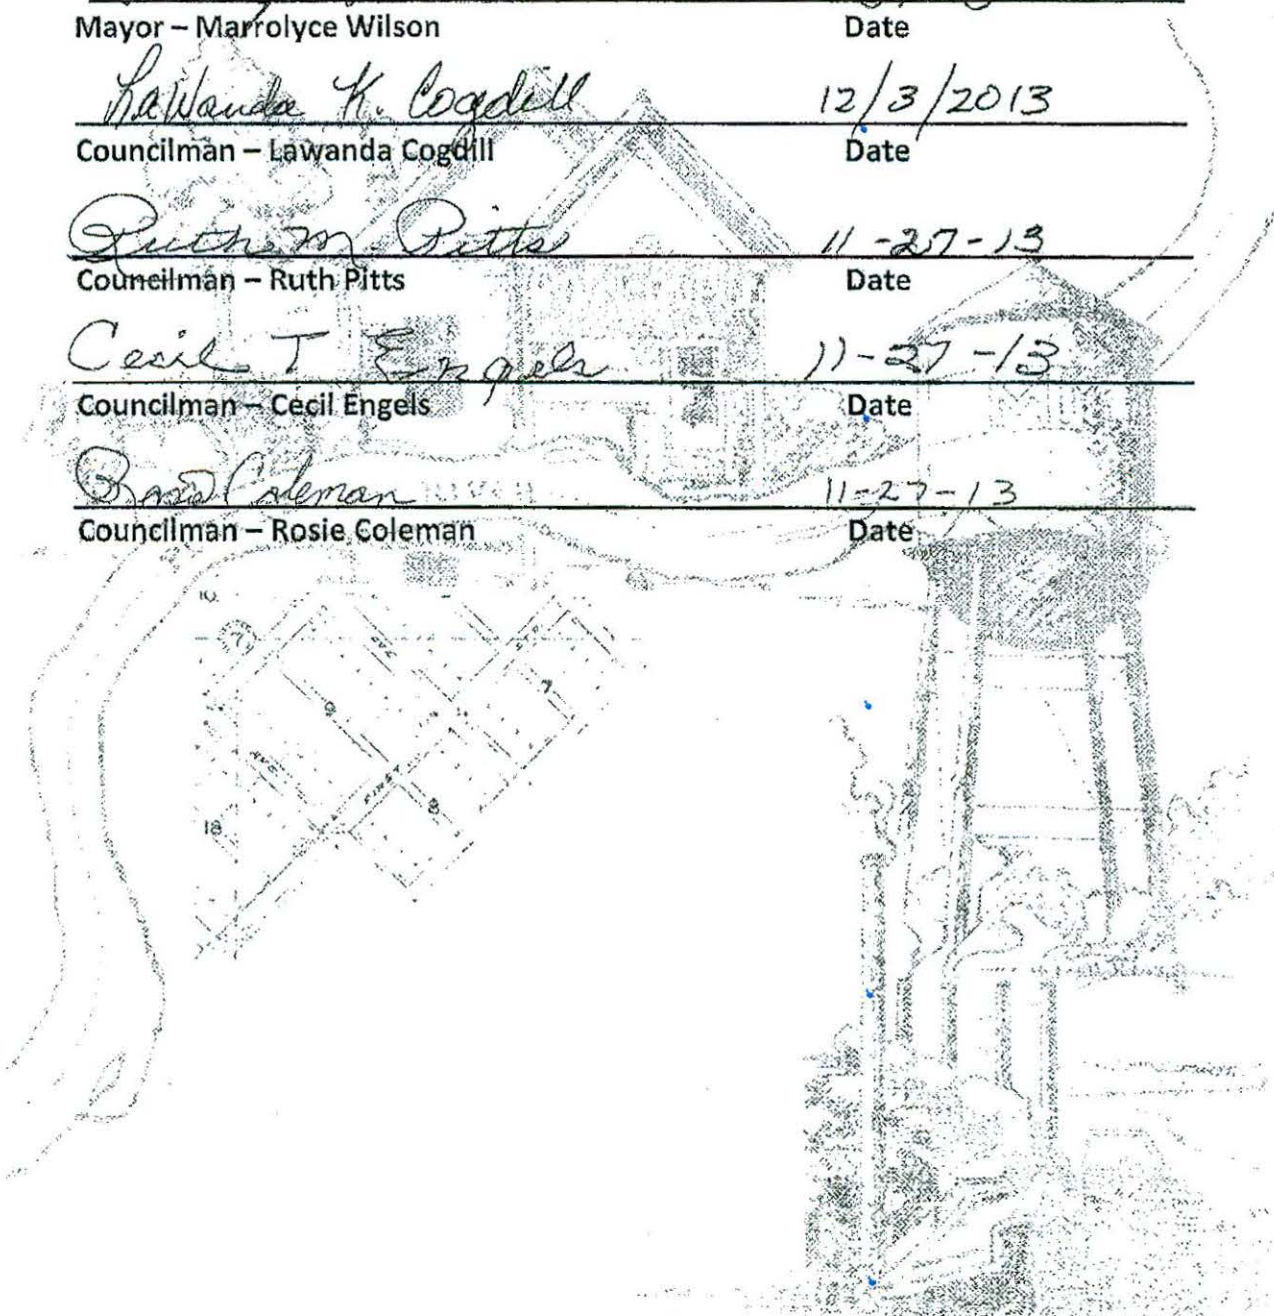 Mayor – Marrolyce Wilson Date
LaWanda K. Cogdill 12/3/2013
Councilman – Lawanda Cogdill Date
Ruth M. Pitts 11-27-13
Councilman – Ruth Pitts Date
Cecil T Engels 11-27-13
Councilman – Cecil Engels Date
Coleman 11-27-13
Councilman – Rosie Coleman Date
10
7
AVE
9
7
AVE
FIRST
8
18